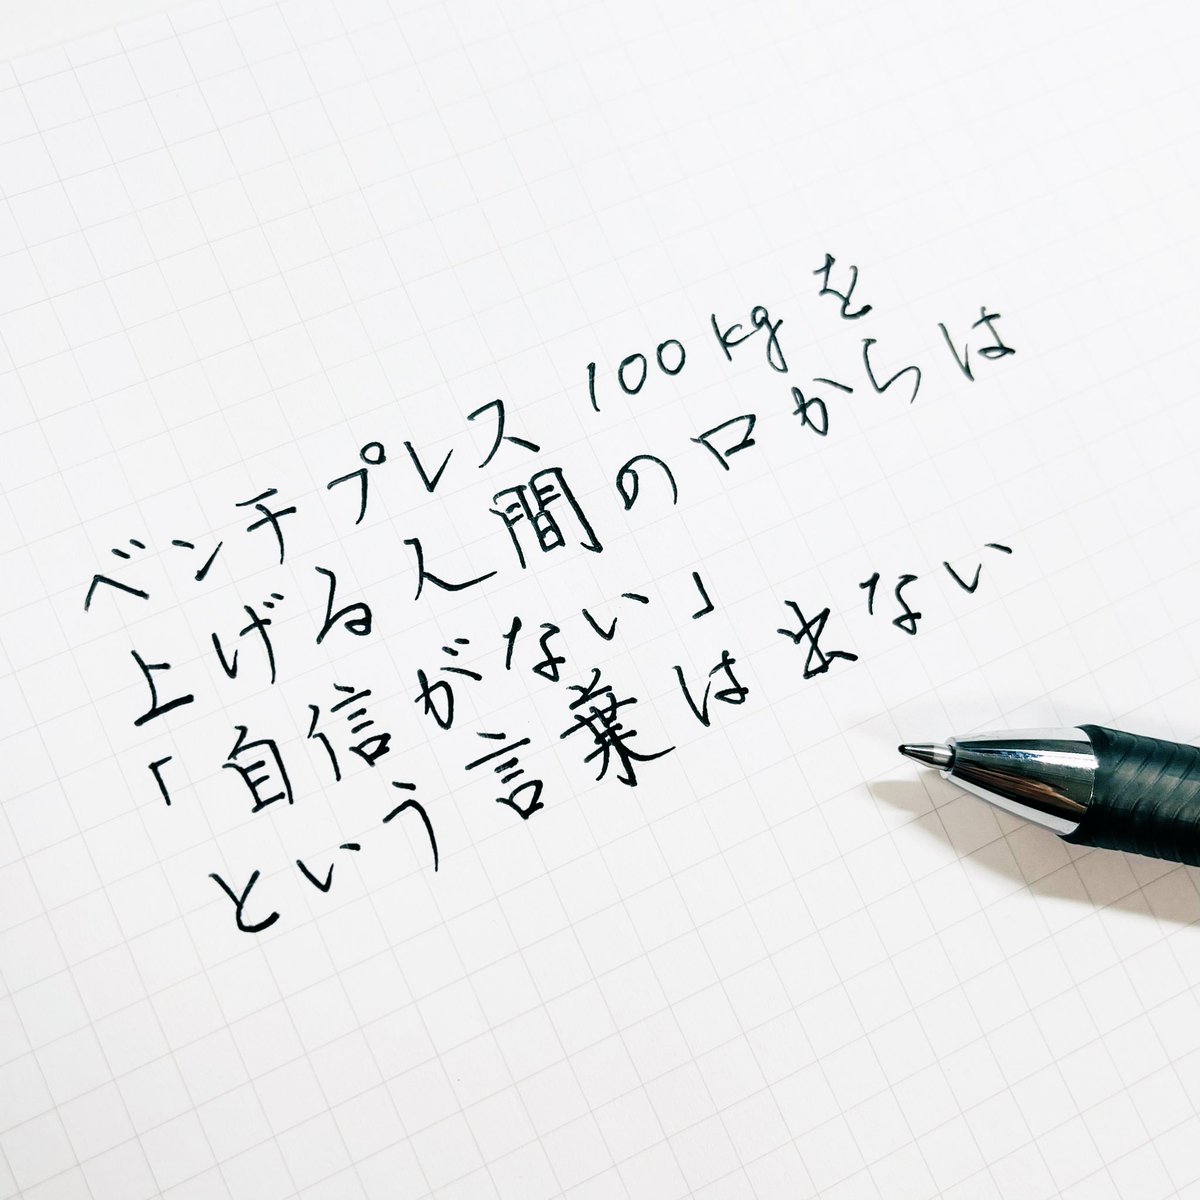 ベンチプレス 100kgを
上げる人間の口からは
「自信がない」
という言葉は出ない